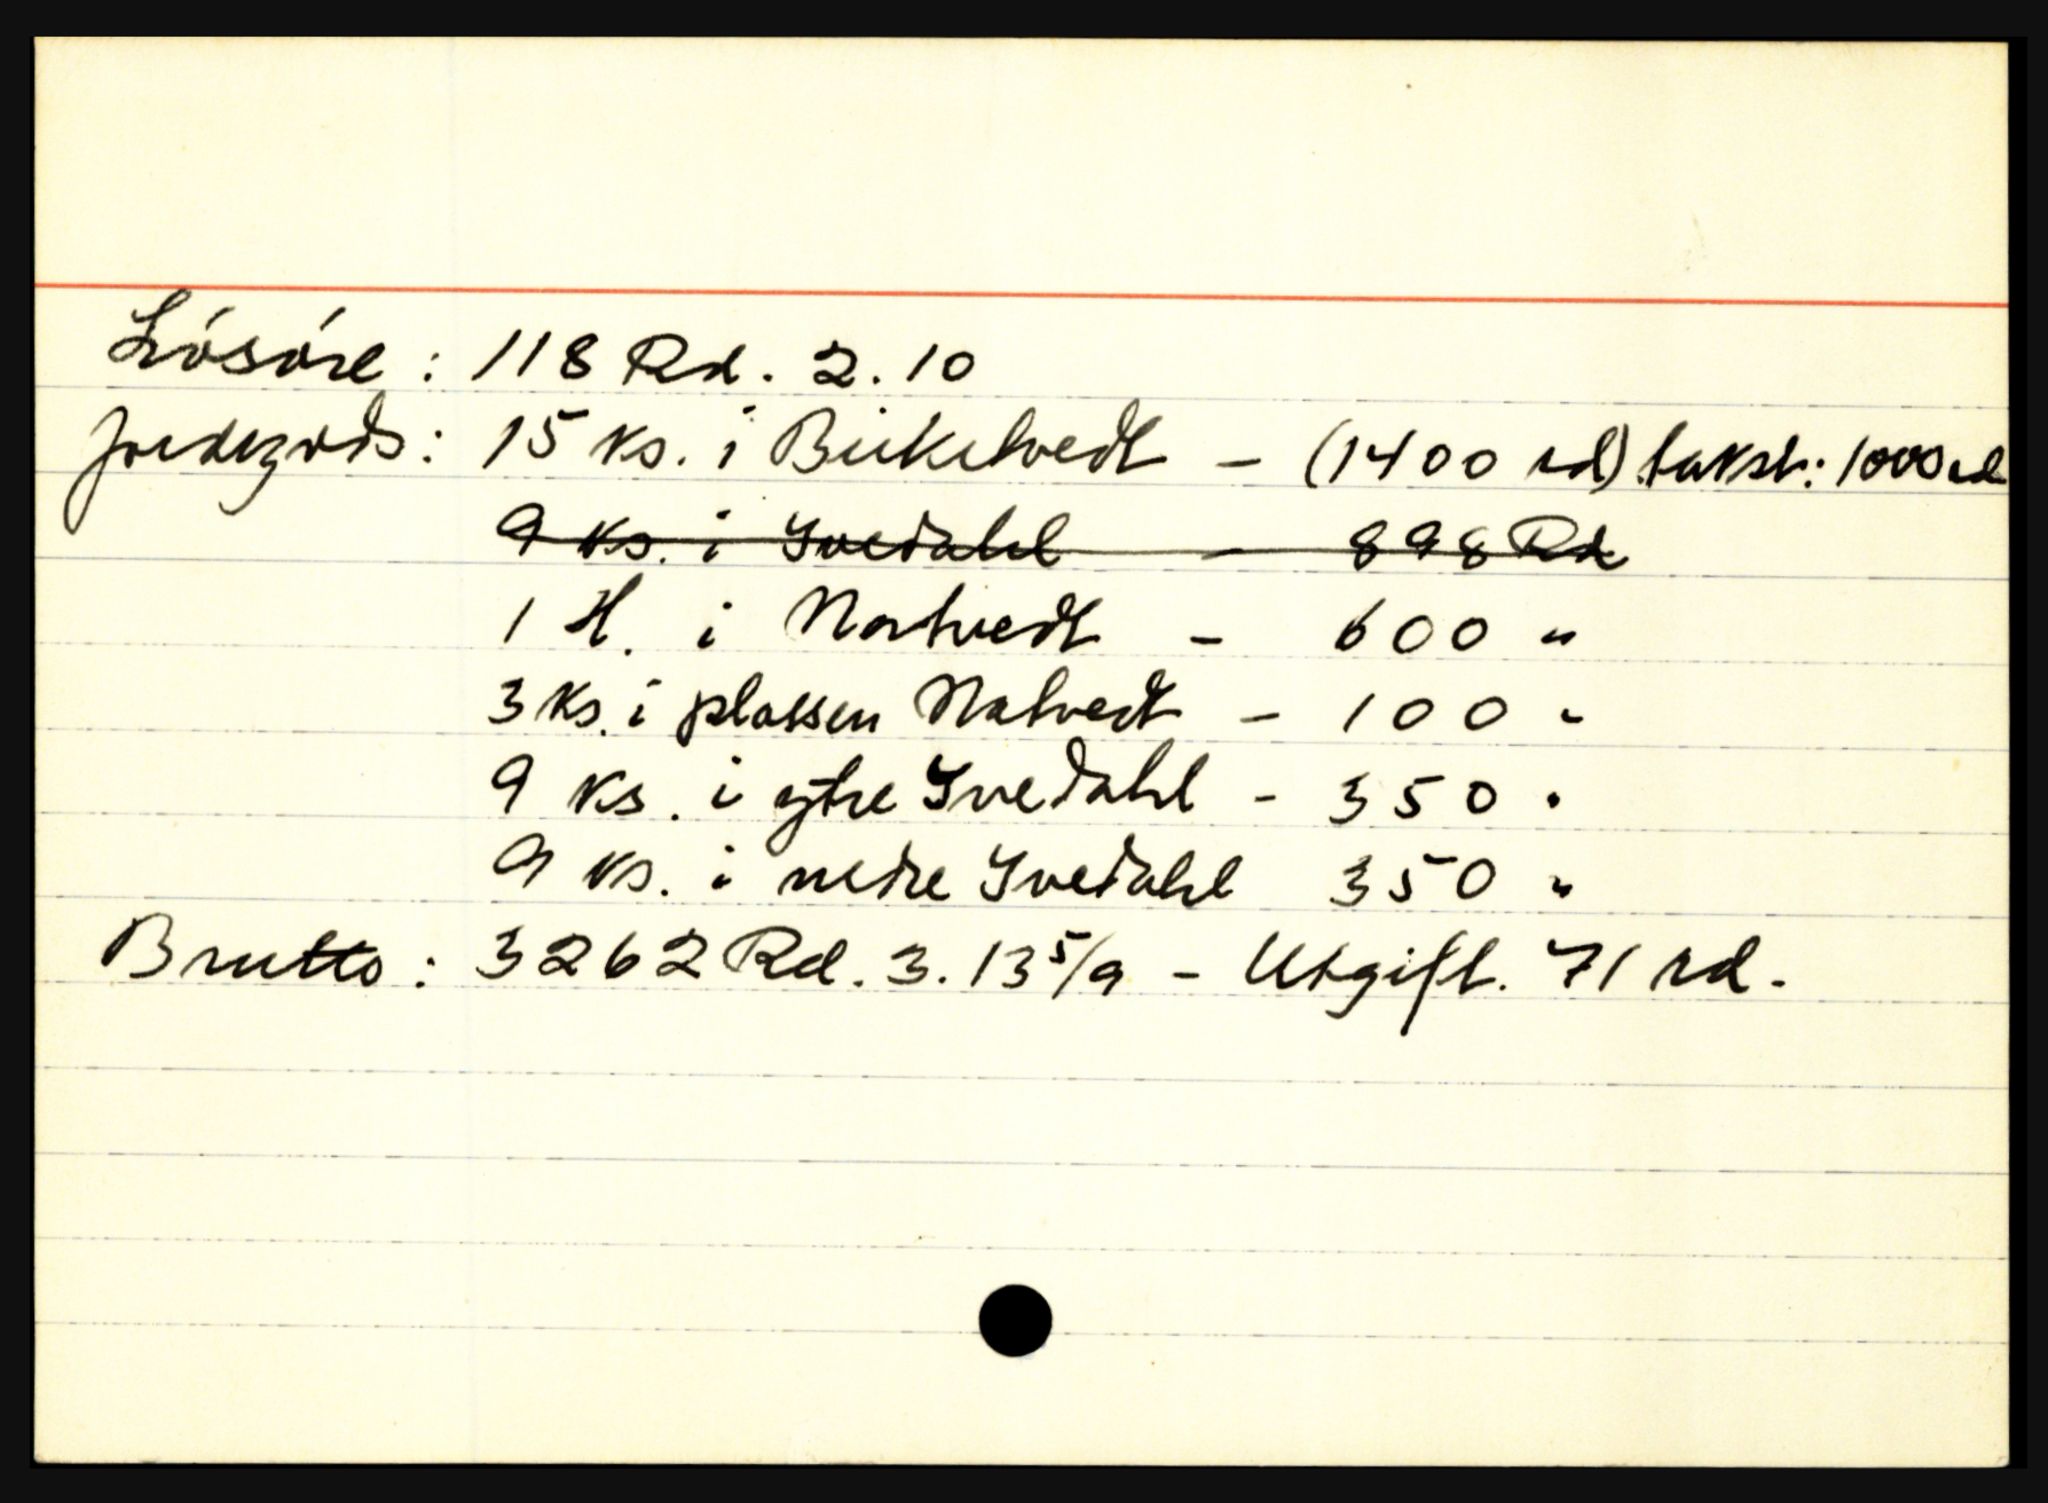 Lösöre: 118 Rd. 2. 10
Jordegods: 15 ks. i Birketvedt - (1400 rd) takst: 1000 rd
9 ks. i Ivedahl - 898 Rd
1 H. i Natvedt - 600 "
3 ks. i plassen Natvedt - 100 "
9 ks. i ytre Ivedahl - 350 "
9 ks. i nedre Ivedahl 350 "
Brutto: 3262 Rd. 3. 13 5/9 - Utgift. 71 rd.